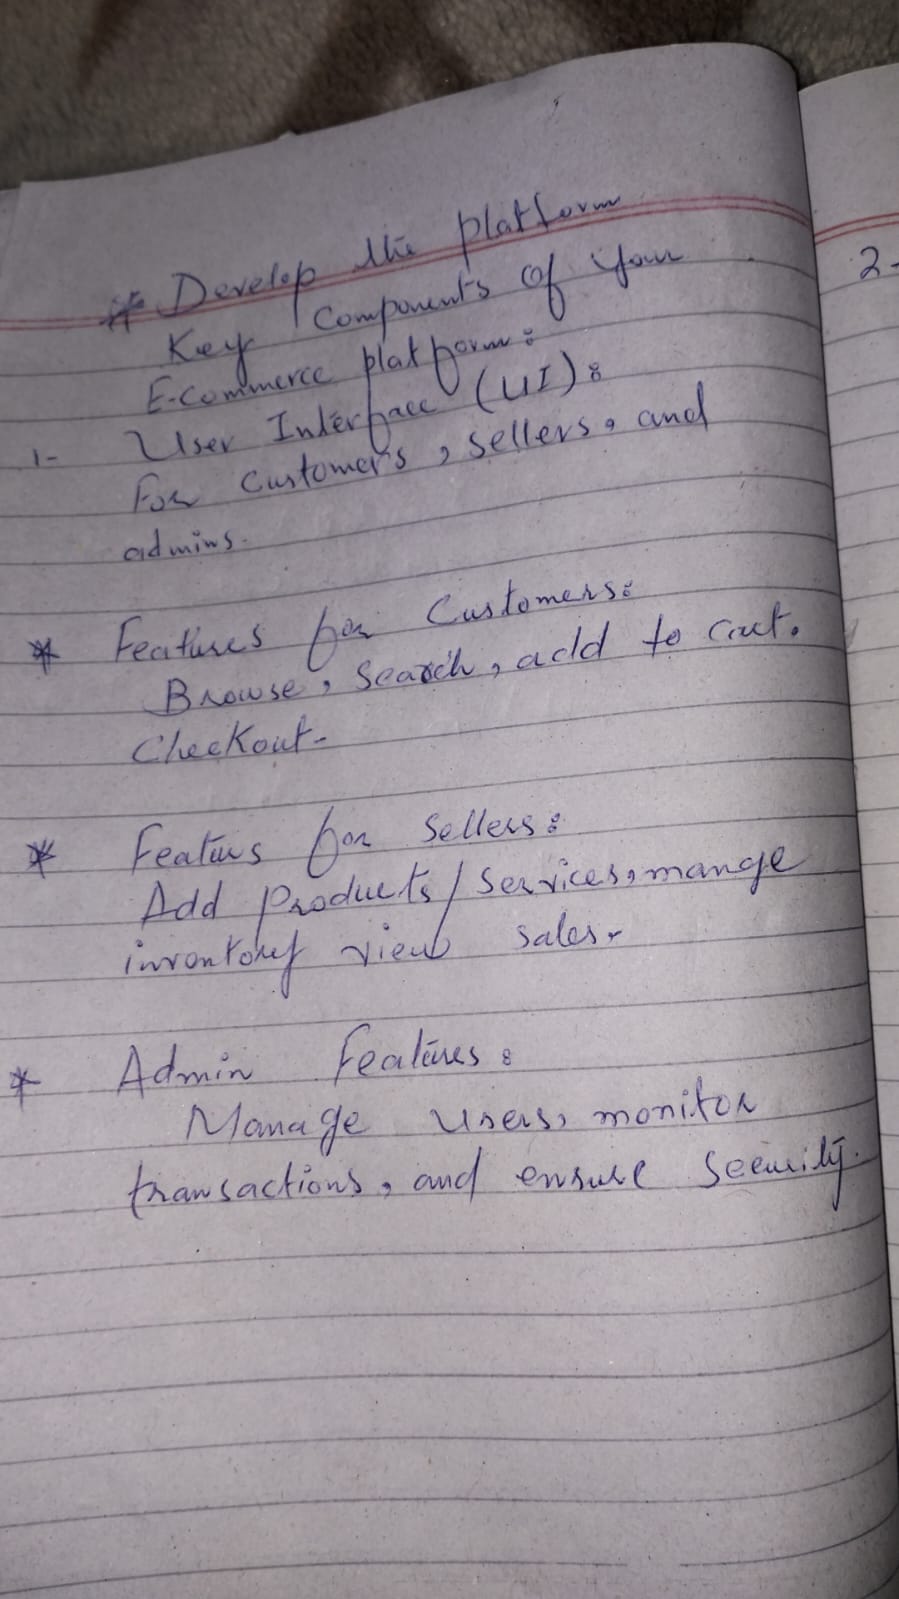 * Develop the platform
Key Components of your
E-Commerce platform:
1- User Interface (UI):
For Customers, sellers, and
admins.
* Features for Customers:
Browse, Search, add to cart.
Checkout-
* Featurs for Sellers:
Add products/services, mange
inventory view sales.
* Admin Features:
Manage users, monitor
transactions, and ensure Security.
2-